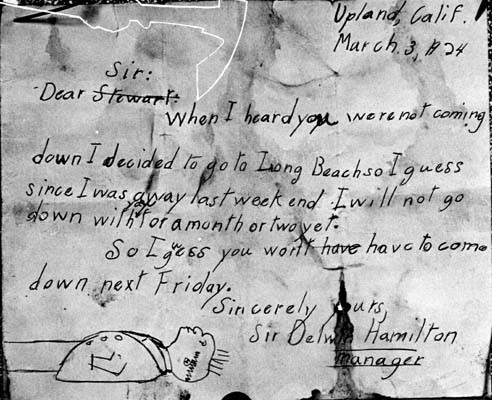 Upland, Calif.
March. 3, 1924
Sir:
Dear Stewart:
When I heard you were not coming
down I decided to go to Long Beach so I guess
since I was away last week end I will not go
down with for a month or two yet.
So I guess you won't have have to come
down next Friday.
Sincerely yours,
Sir Delwin Hamilton
manager